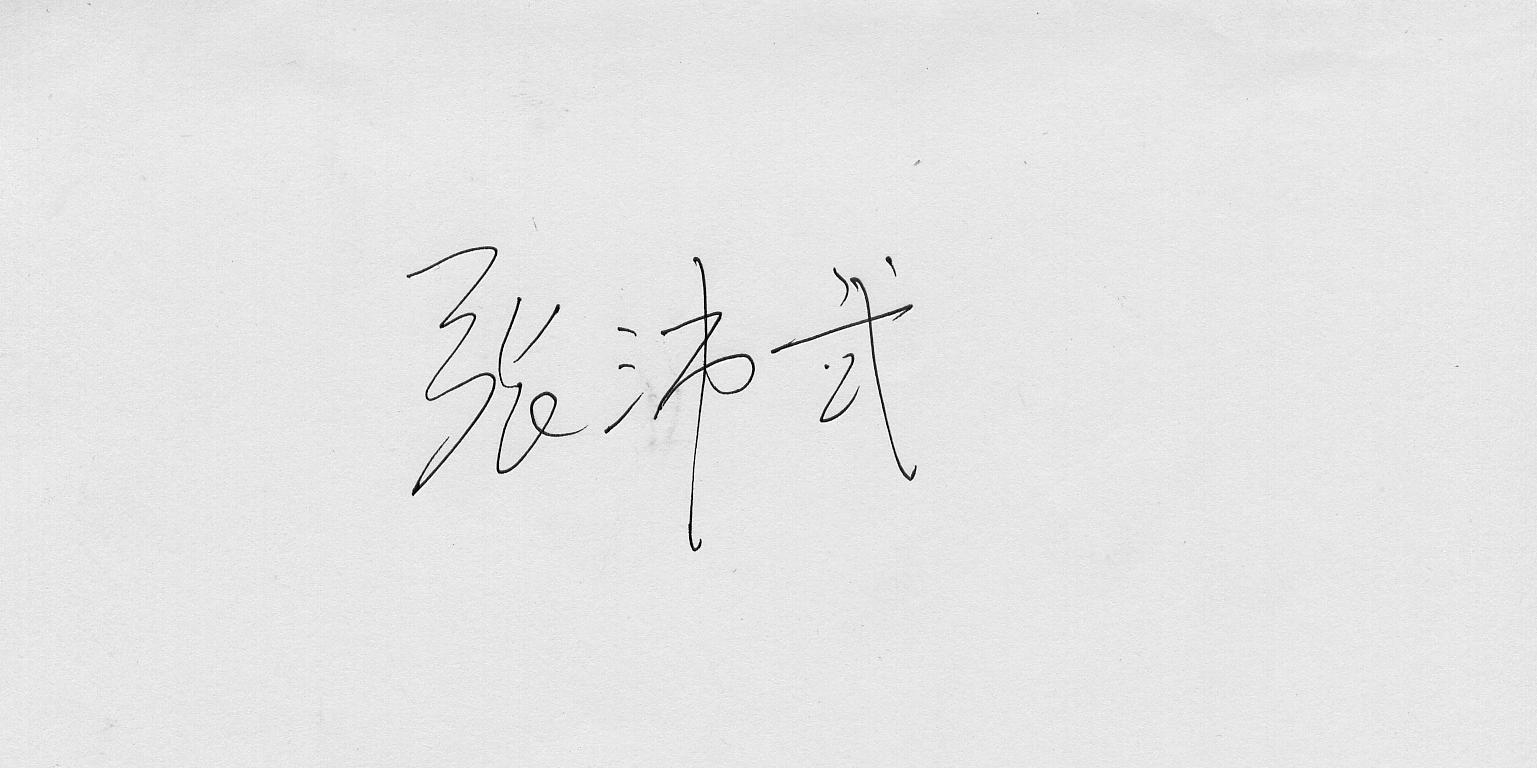 张沛武